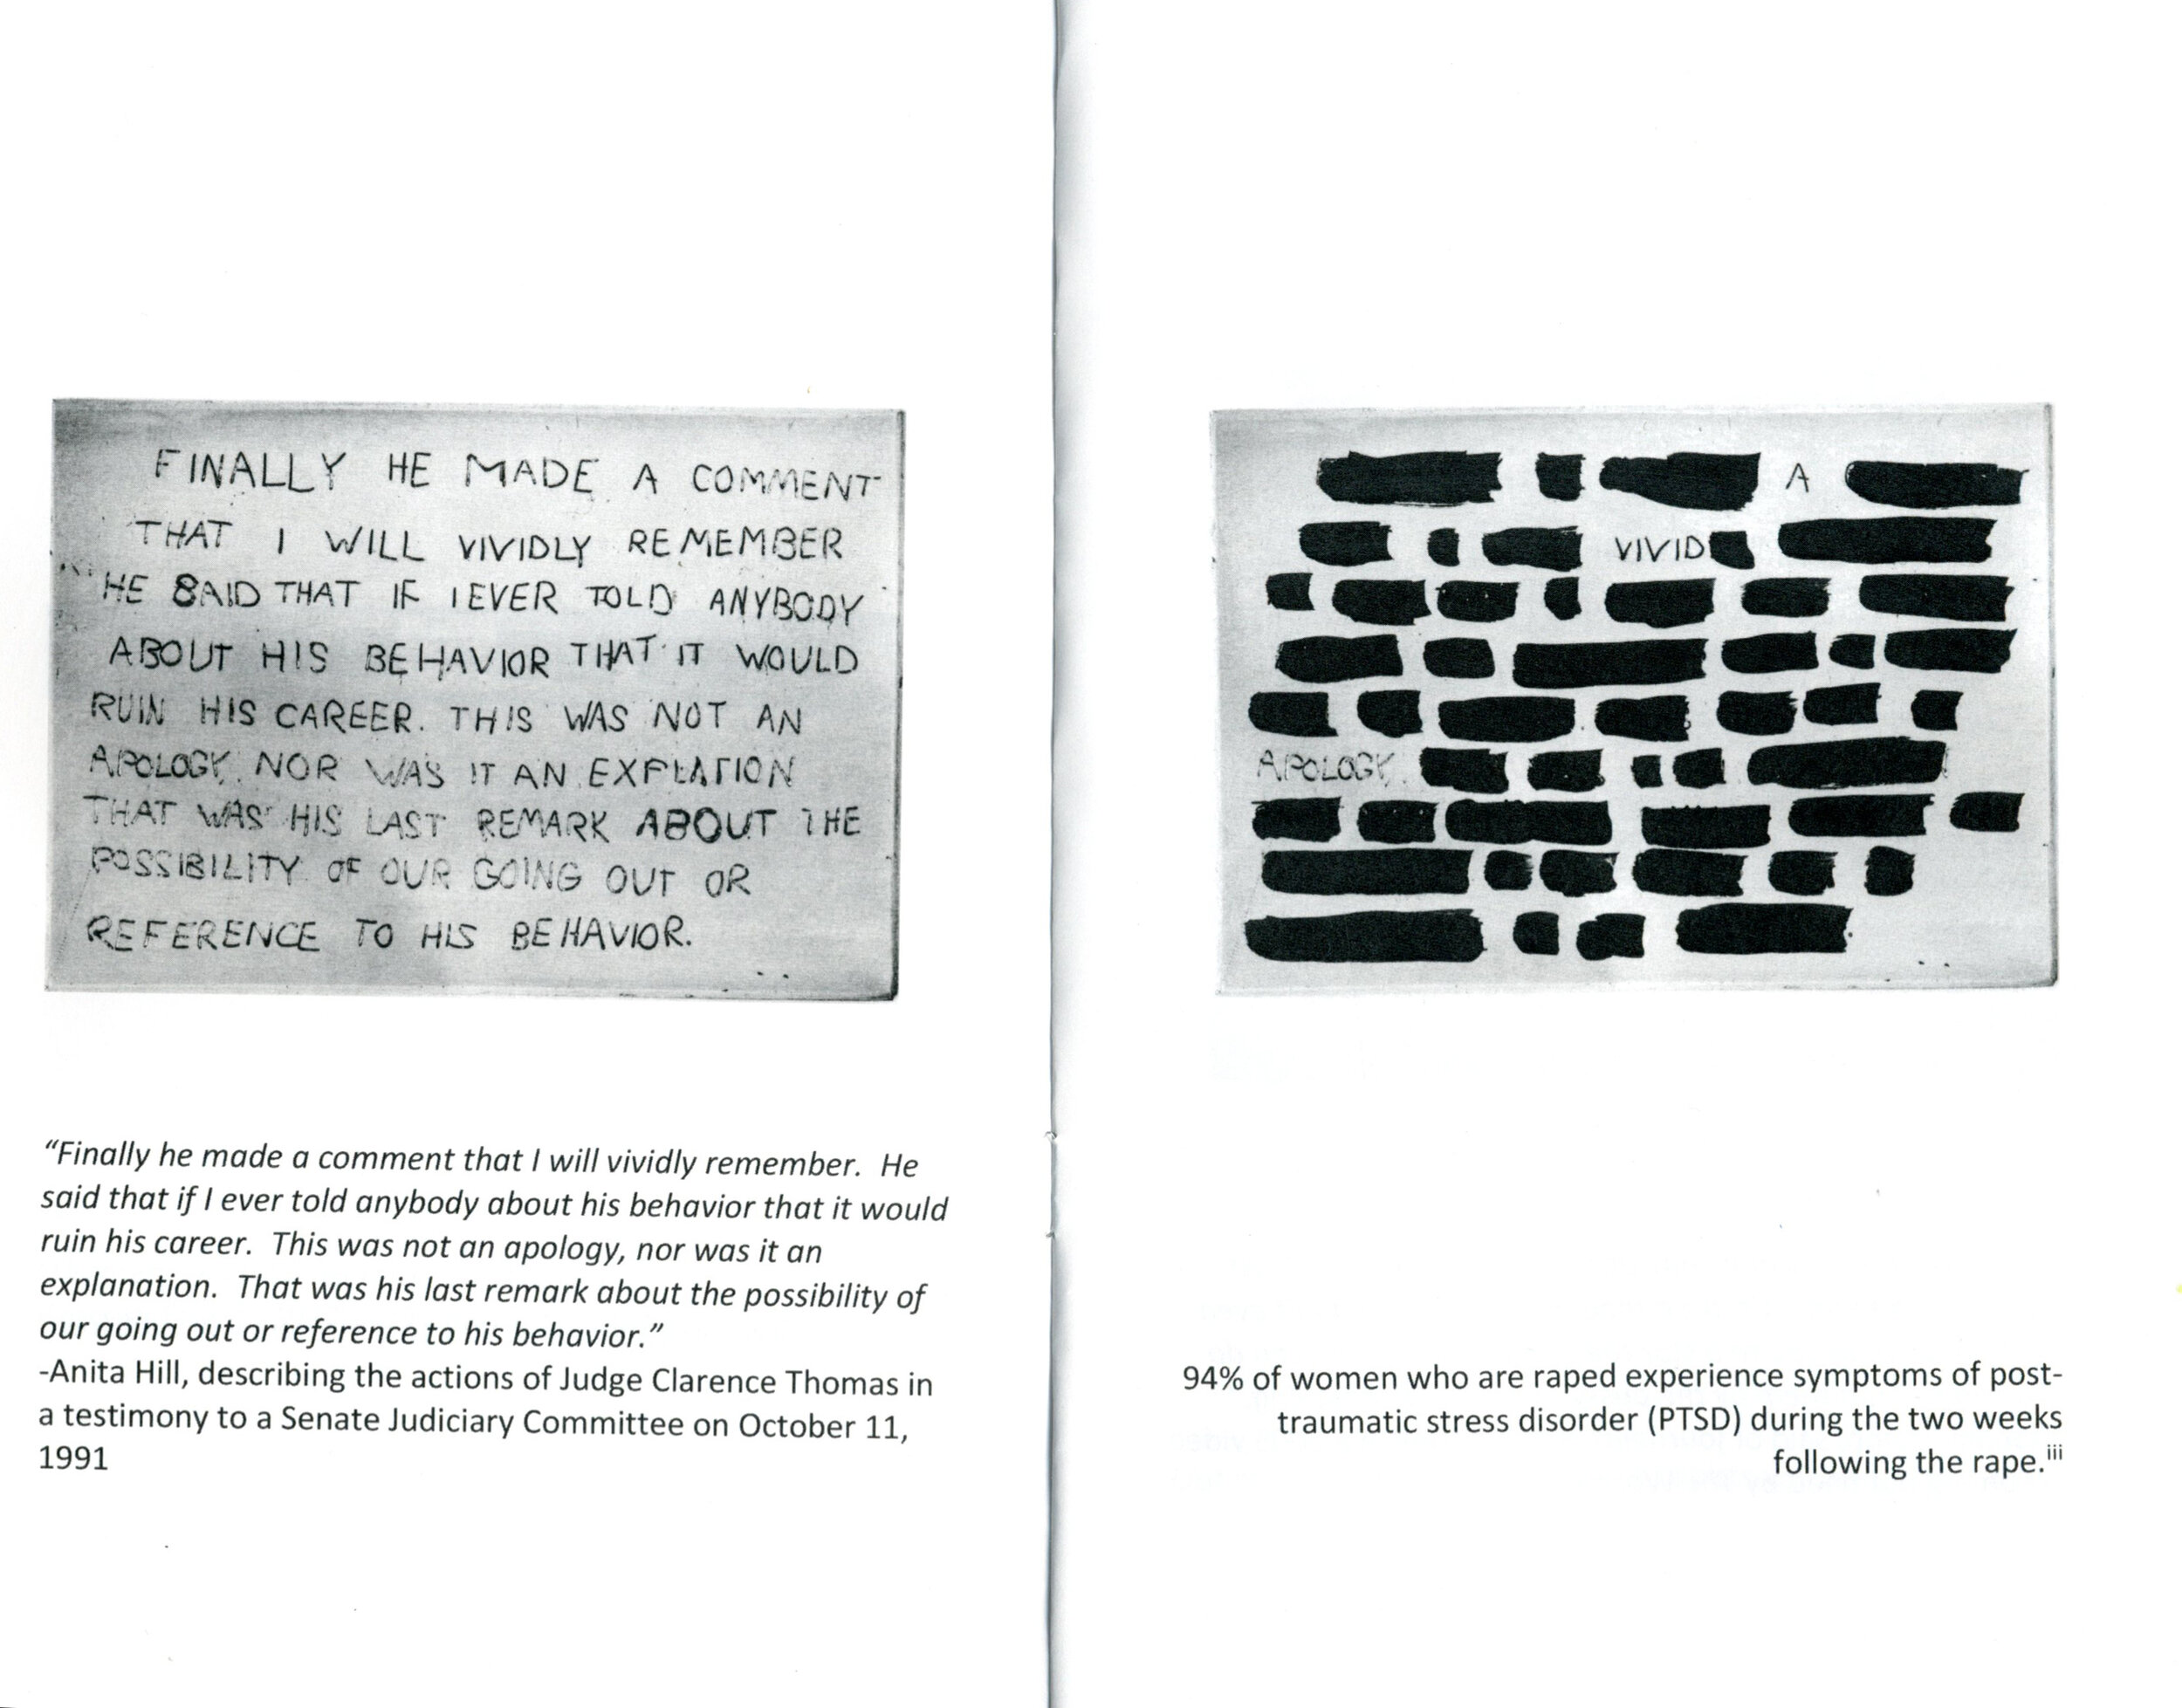 FINALLY HE MADE A COMMENT
THAT I WILL VIVIDLY REMEMBER
HE SAID THAT IF I EVER TOLD ANYBODY
ABOUT HIS BEHAVIOR THAT IT WOULD
RUIN HIS CAREER. THIS WAS NOT AN
APOLOGY, NOR WAS IT AN EXPLATION
THAT WAS HIS LAST REMARK ABOUT THE
POSSIBILITY OF OUR GOING OUT OR
REFERENCE TO HIS BEHAVIOR.
“Finally he made a comment that I will vividly remember. He
said that if I ever told anybody about his behavior that it would
ruin his career. This was not an apology, nor was it an
explanation. That was his last remark about the possibility of
our going out or reference to his behavior.”
-Anita Hill, describing the actions of Judge Clarence Thomas in
a testimony to a Senate Judiciary Committee on October 11,
1991
A
VIVID
APOLOGY,
94% of women who are raped experience symptoms of post-
traumatic stress disorder (PTSD) during the two weeks
following the rape.iii